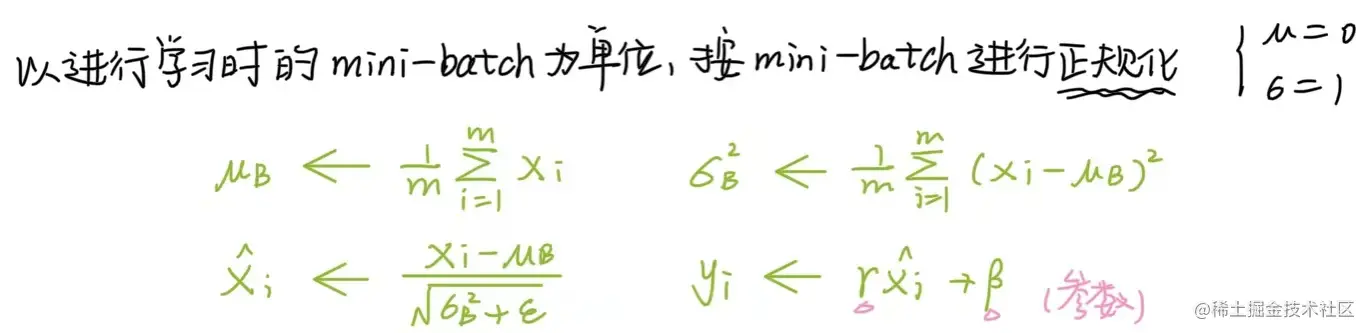 以进行学习时的 mini-batch 为单位, 按 mini-batch 进行正规化 { μ=0
σ=1
μB ← 1/m ∑_{i=1}^{m} xi    σB² ← 1/m ∑_{i=1}^{m} (xi-μB)²
x̂i ← (xi-μB)/√(σB²+ε)    yi ← γx̂i+β (参数)
@稀土掘金技术社区